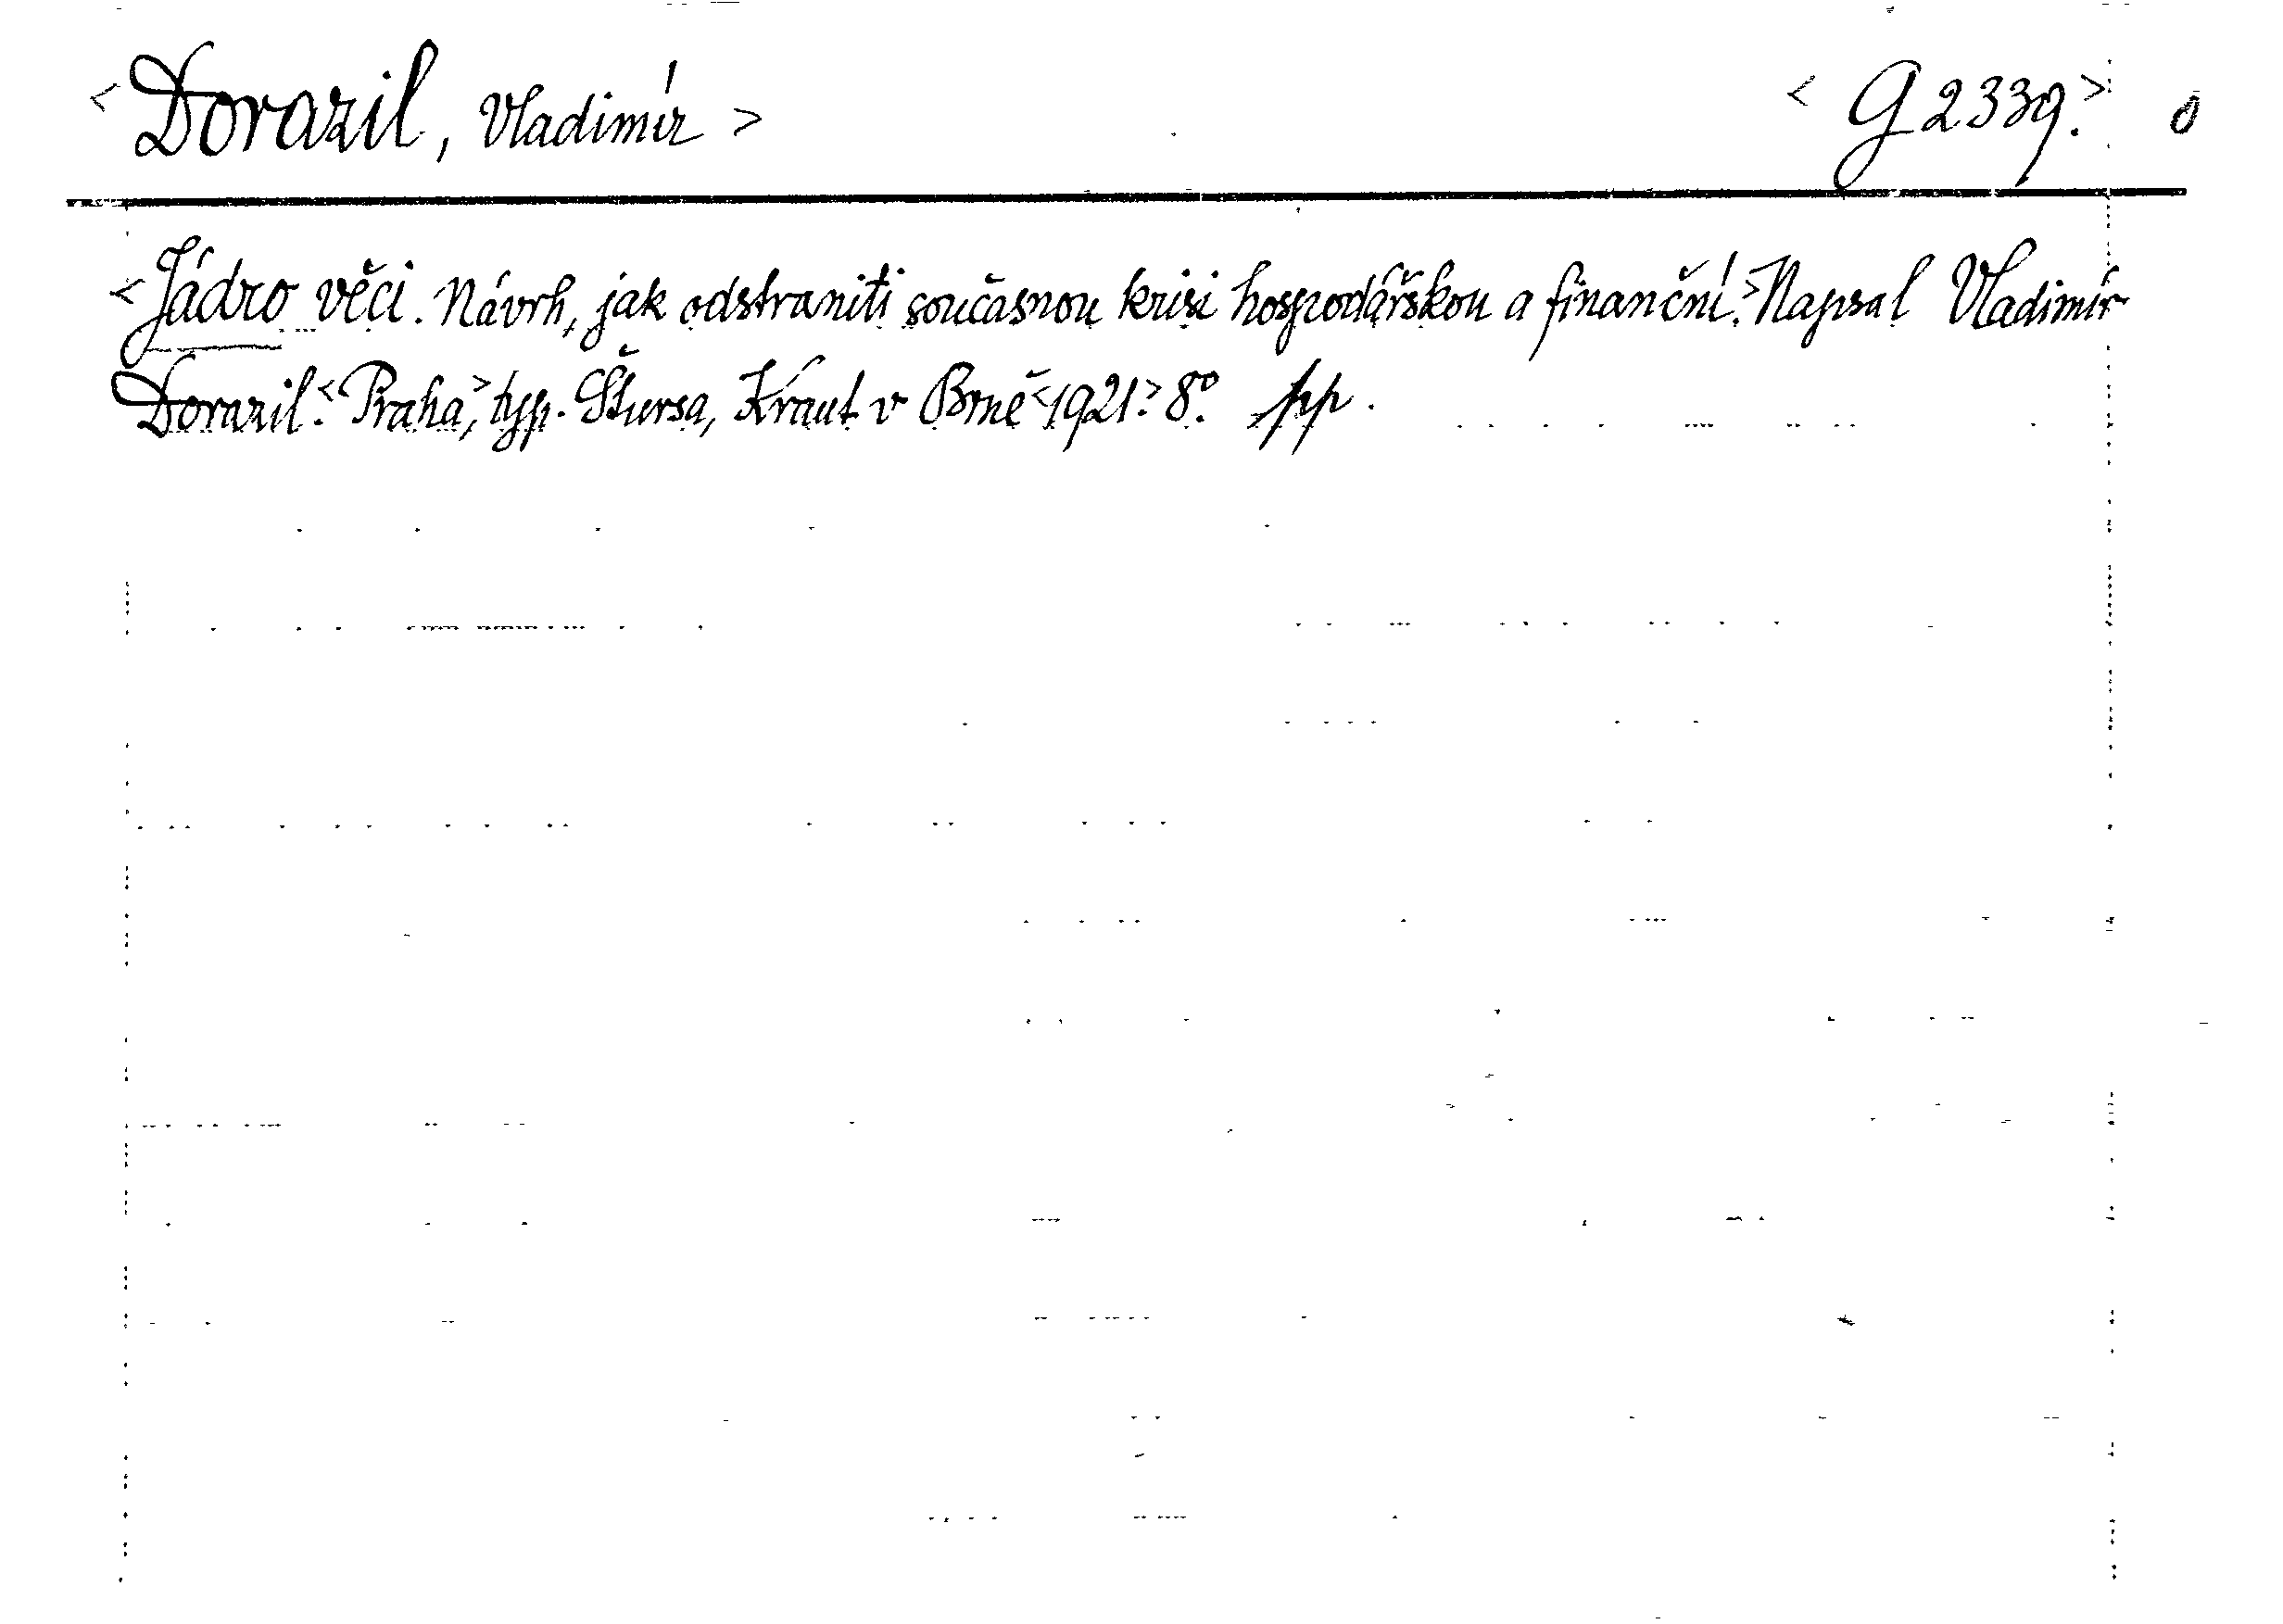 <Dorazil, Vladimír> <G 2339.> o
<Jádro věci. Návrh, jak odstraniti současnou krisi hospodářskou a finanční.> Napsal Vladimír
Dorazil.<Praha,> typ. Štursa, Kraut v Brně <1921.> 8º. pp.